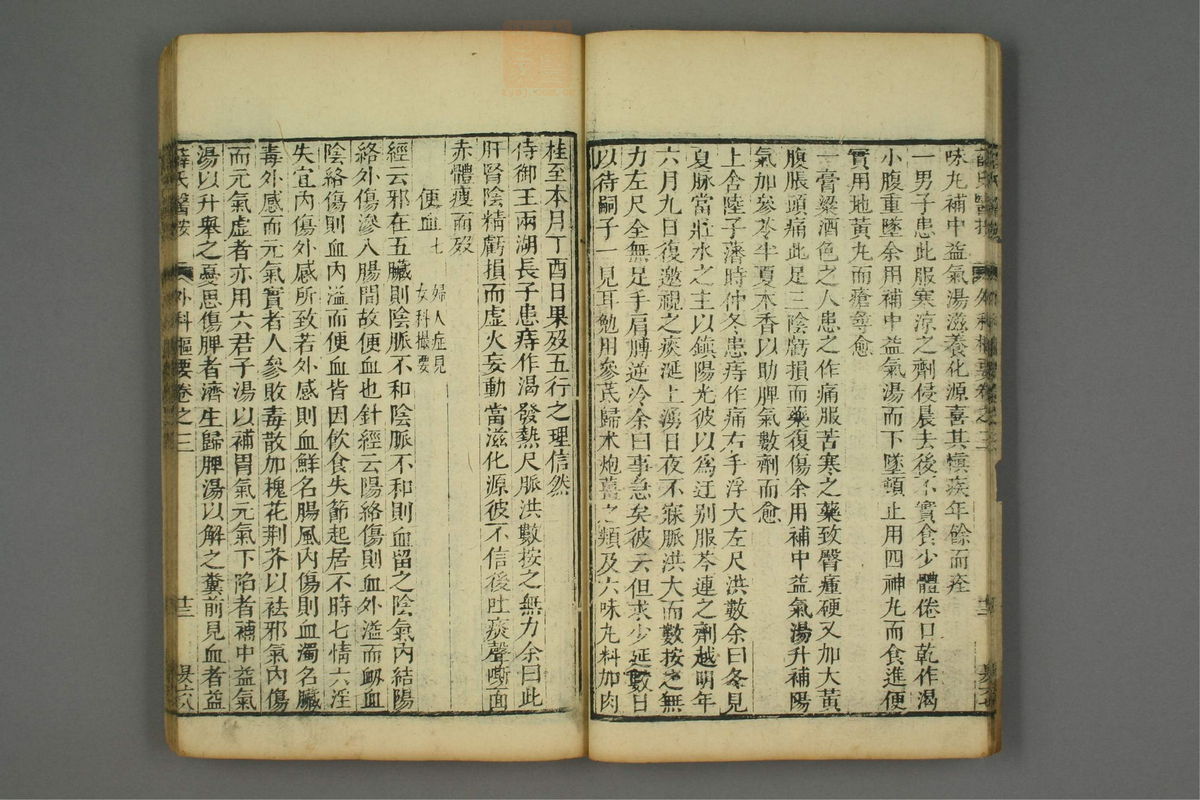 味丸補中益氣湯滋養化源喜其慎疾年餘而痊
一男子患此服寒涼之劑侵晨去後不實食少體倦口乾作渴
小腹重墜余用補中益氣湯而下墜頓止用四神丸而食進便
實用地黃丸而瘡尋愈
一膏粱酒色之人患之作痛服苦寒之藥致臀腫硬又加大黃
腹脹頭痛此足三陰虧損而藥復傷余用補中益氣湯升補陽
氣加參苓半夏木香以助脾氣數劑而愈
上舍陸子藩時仲冬患痔作痛右手浮大左尺洪數余曰冬見
夏脉當壯水之主以鎮陽光彼以為迂别服芩連之劑越明年
六月九日復邀視之痰涎上湧日夜不寐脈洪大而數按之無
力左尺全無足手肩膊逆冷余曰事急矣彼云但求少延數日
以待嗣子一見耳勉用參芪歸术炮薑之類及六味丸料加肉
桂至本月丁酉日果歿五行之理信然
侍御王兩湖長子患痔作渴發熱尺脈洪數按之無力余曰此
肝腎陰精虧損而虛火妄動當滋化源彼不信後吐痰聲嘶面
赤體瘦而歿
便血七 婦人症見女科撮要
經云邪在五臟則陰脈不和陰脈不和則血留之陰氣內結陽
絡外傷滲入腸間故便血也針經云陽絡傷則血外溢而衂血
陰絡傷則血內溢而便血皆因飲食失節起居不時七情六淫
失宜內傷外感所致若外感則血鮮名腸風內傷則血濁名臟
毒外感而元氣實者人參敗毒散加槐花荆芥以祛邪氣內傷
而元氣虛者亦用六君子湯以補胃氣元氣下陷者補中益氣
湯以升舉之憂思傷脾者濟生歸脾湯以解之糞前見血者益
薛氏醫按 外科樞要卷之三 廿三 吳六八